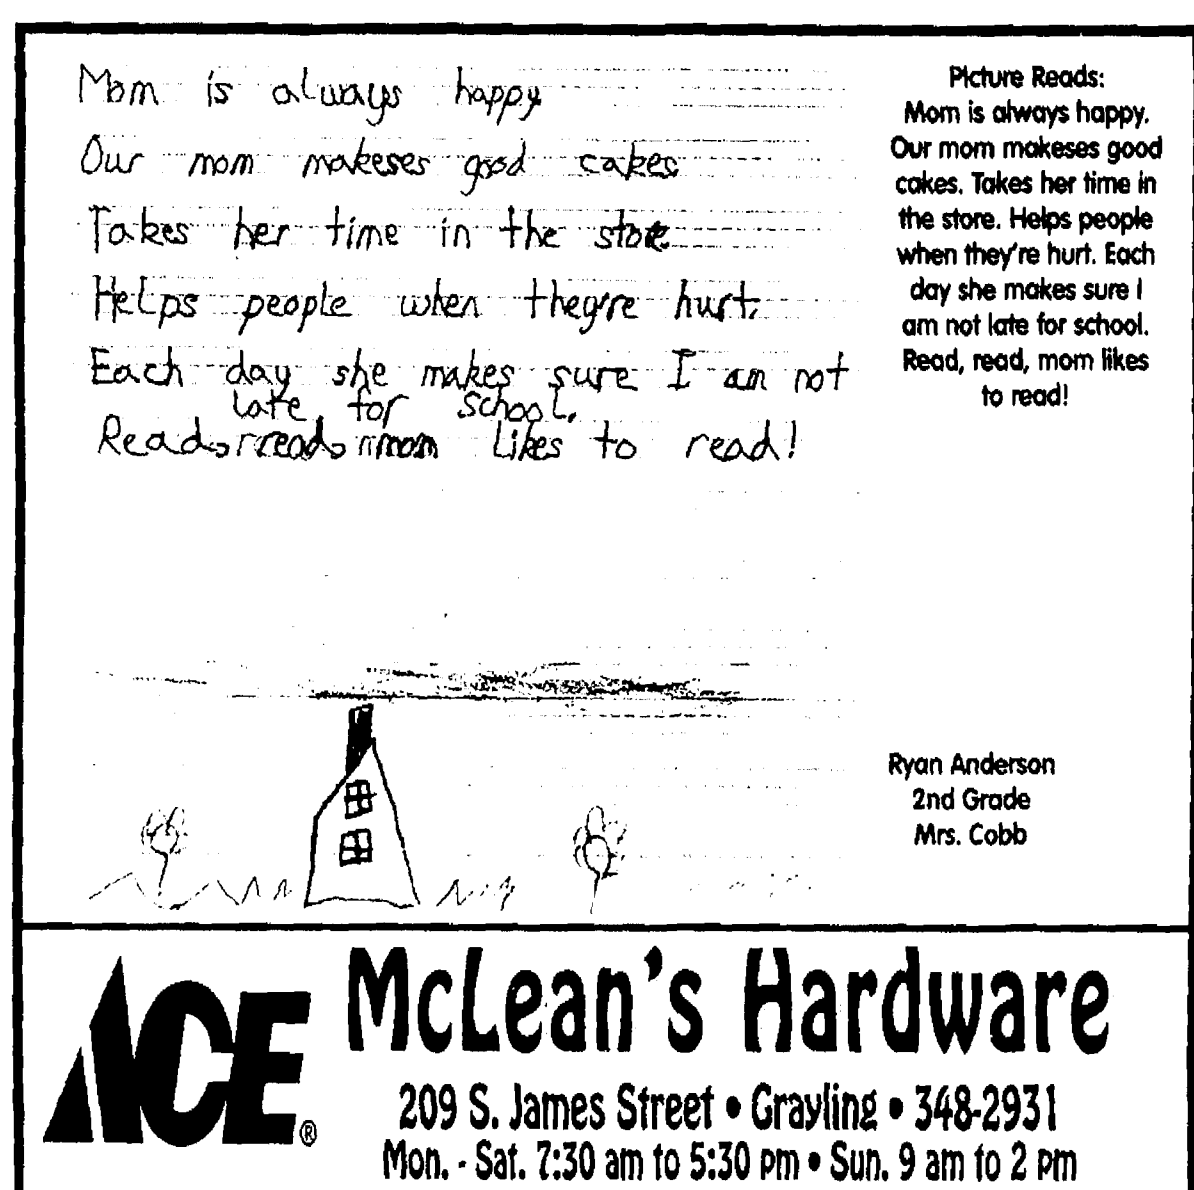 Mom is always happy
Our mom makeses good cakes
Takes her time in the store
Helps people when they're hurt.
Each day she makes sure I am not
late for school.
Read, read, mom likes to read!
Picture Reads:
Mom is always happy.
Our mom makeses good
cakes. Takes her time in
the store. Helps people
when they're hurt. Each
day she makes sure I
am not late for school.
Read, read, mom likes
to read!
Ryan Anderson
2nd Grade
Mrs. Cobb
ACE®
McLean's Hardware
209 S. James Street • Grayling • 348-2931
Mon. - Sat. 7:30 am to 5:30 pm • Sun. 9 am to 2 pm